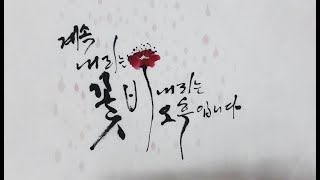 계속
내리는
꽃비 내리는
오후입니다